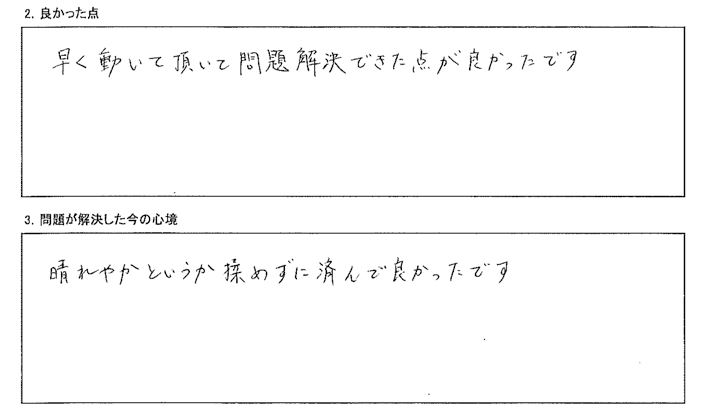 2. 良かった点
早く動いて頂いて問題解決できた点が良かったです
3. 問題が解決した今の心境
晴れやかというか揉めずに済んで良かったです